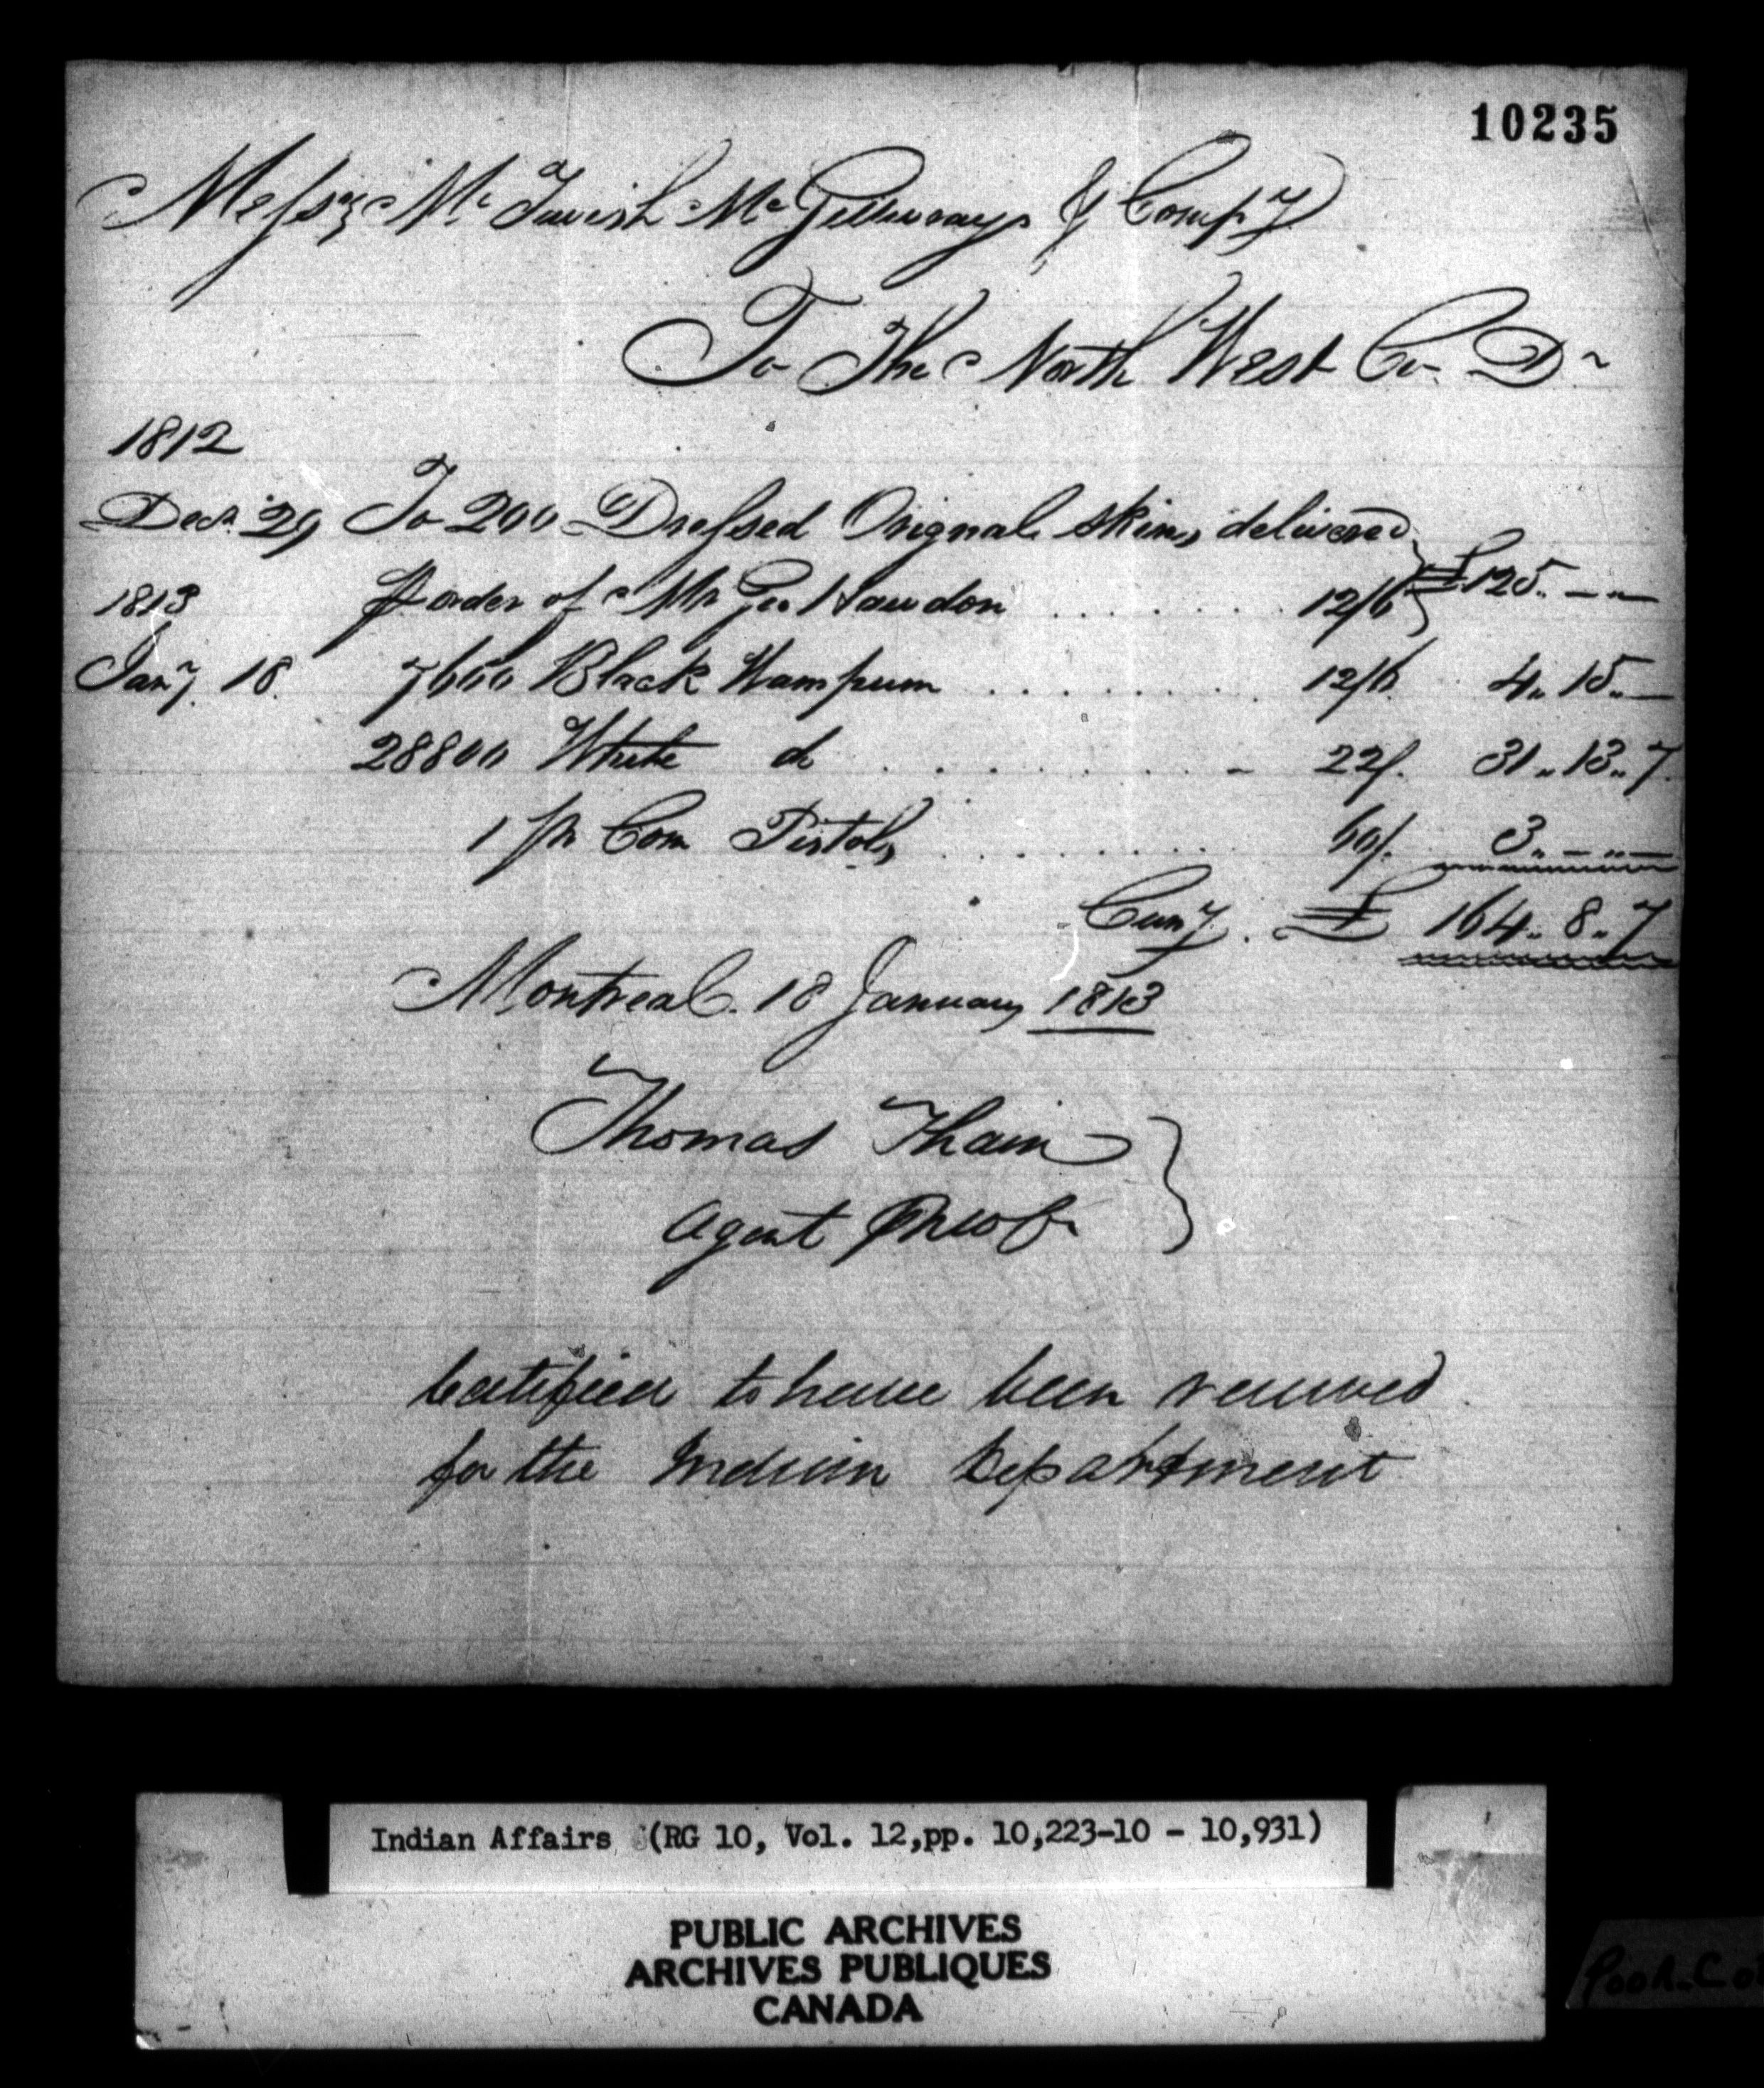 10235
Messrs McTavish McGillivrays & Compy
To The North West Co. Dr
1812
Decr 29 To 200 Dressed Orignal skins delivered
1813 ⅌ order of Mr Geo Hawdon . . . . . . . 12/6 } £125.. –..–
Jany 18. 7600 Black Wampum . . . . . . . . . 12/6 4.. 15..–
28800 White do . . . . . . . . . - 22/. 31.. 13.. 7
1 pr Com Pistols . . . . . . . . . 60/. 3..–..–
Curry. £ 164.. 8.. 7
Montreal. 18 January 1813
Thomas Thain
Agent NWCo
Certified to have been received
for the Indian Department
Indian Affairs (RG 10, Vol. 12,pp. 10,223-10 - 10,931)
PUBLIC ARCHIVES
ARCHIVES PUBLIQUES
CANADA